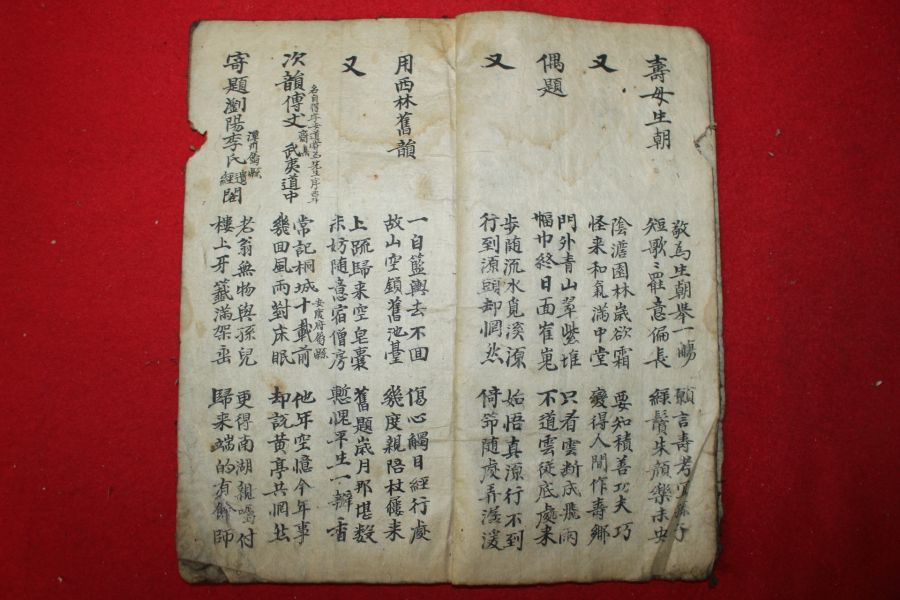 壽母生朝
敬為生朝擧一觴
短歌〻罷意偏長
願言壽考宜孫子
綠鬢朱顏樂未央
又
陰澹園林歲欲霜
怪来和氣滿中堂
要知積善功夫巧
變得人間作壽鄉
偶題
門外青山翠紫堆
幅巾終日面崔嵬
只看雲斷成飛雨
不道雲從底處来
又
步隨流水覓溪源
行到源頭却惘然
始悟真源行不到
倚筇隨處弄潺湲
用西林舊韻
一自籃輿去不回
故山空鎖舊池臺
傷心觸目經行處
幾度親陪杖屨来
又
上疏歸来空皂囊
未妨隨意宿僧房
舊題歲月那堪數
慙愧平生一瓣香
次韻傅丈武夷道中
常記桐城十載前
安慶府屬縣
幾回風雨對床眠
他年空憶今年事
却說黃亭共惘然
寄題瀏陽李氏遺經閣
潭州屬縣
老翁無物與孫兒
樓上牙籤滿架垂
更得南湖親囑付
歸来端的有餘師